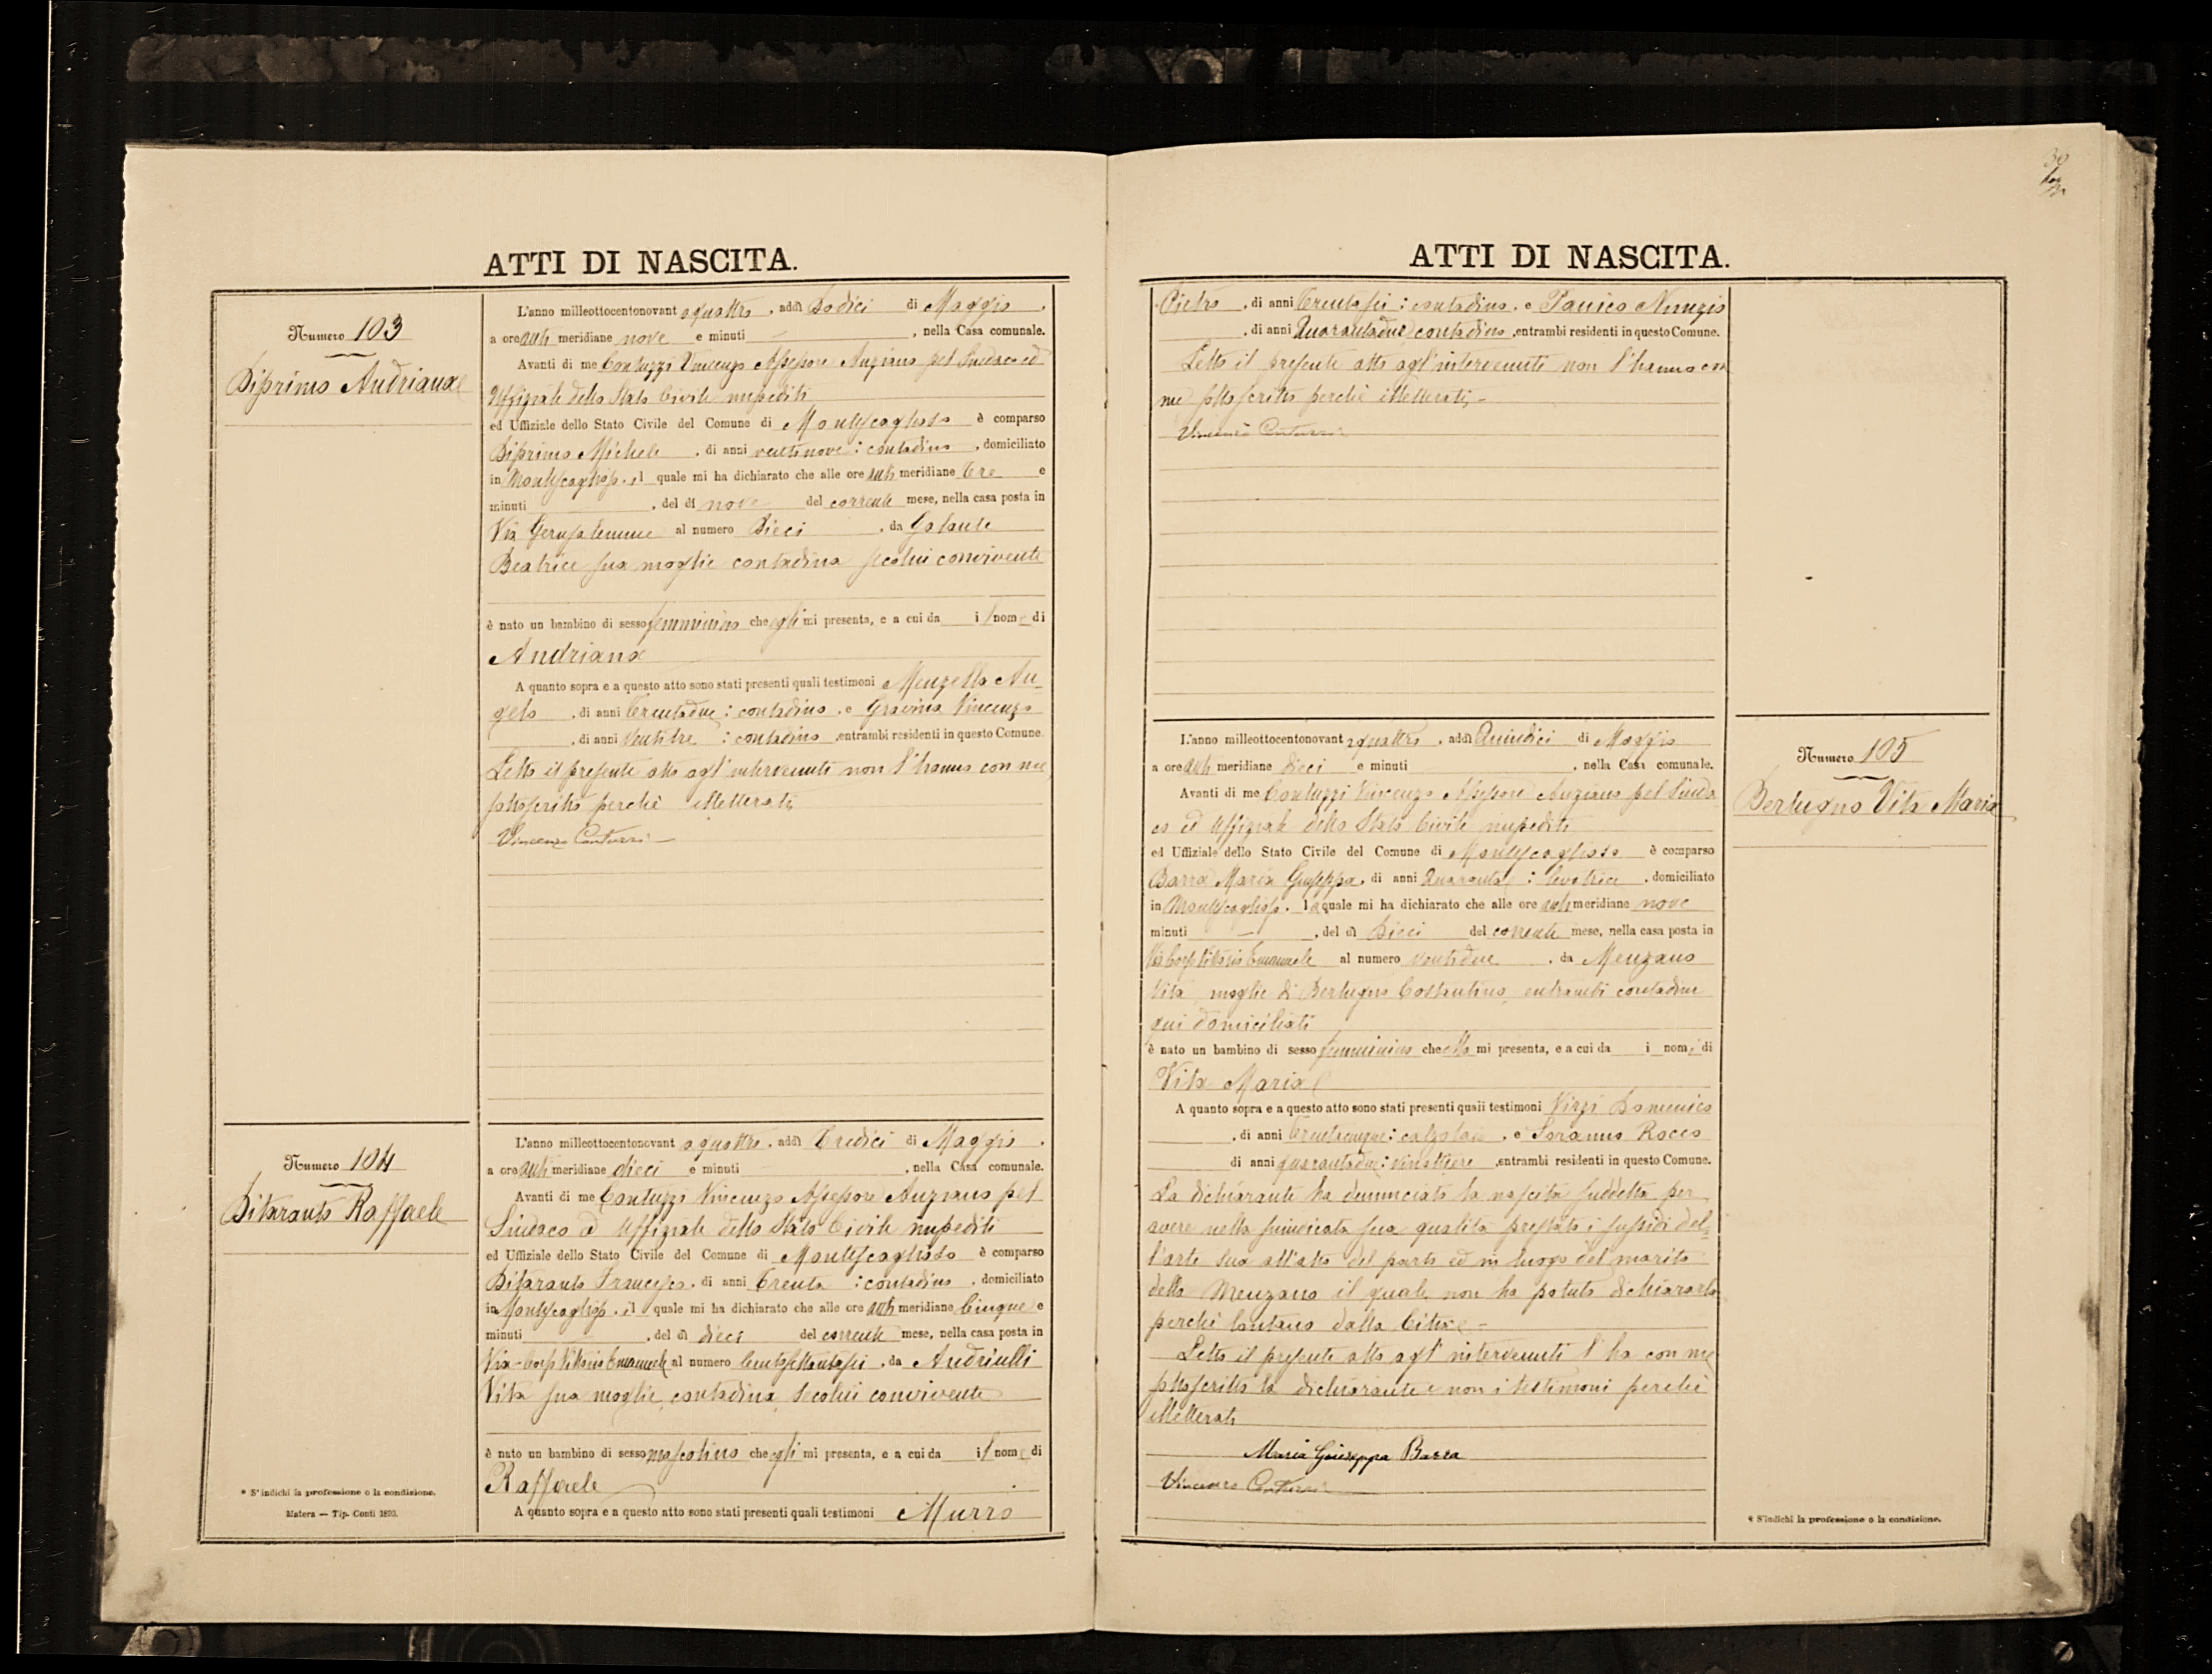 ATTI DI NASCITA.
Numero 103
Disprimo Andriana
L'anno milleottocentonovant aquattro, addì Dodici di Maggio,
a ore anti meridiane nove e minuti, nella Casa comunale.
Avanti di me Contuzzi Vincenzo Assessore Anziano pel Sindaco ed
Uffiziale dello Stato Civile impediti
ed Uffiziale dello Stato Civile del Comune di Montescaglioso è comparso
Disprimo Michele, di anni ventinove : contadino, domiciliato
in Montescaglioso, il quale mi ha dichiarato che alle ore anti meridiane tre e
minuti, del dì nove del corrente mese, nella casa posta in
Via Gerusalemme al numero Dieci, da Galante
Beatrice sua moglie contadina secolui convivente
è nato un bambino di sesso femminino che egli mi presenta, e a cui da il nome di
Andriana
A quanto sopra e a questo atto sono stati presenti quali testimoni Menzella An-
gelo, di anni trentadue : contadino, e Gravina Vincenzo
, di anni ventitre : contadino, entrambi residenti in questo Comune.
Letto il presente atto agl'intervenuti non l'hanno con me
sottoscritto perchè illetterati
Vincenzo Contuzzi
Numero 104
Ditaranto Raffaele
L'anno milleottocentonovant aquattro, addì Tredici di Maggio,
a ore anti meridiane dieci e minuti, nella Casa comunale.
Avanti di me Contuzzi Vincenzo Assessore Anziano pel
Sindaco ed Uffiziale dello Stato Civile impediti
ed Uffiziale dello Stato Civile del Comune di Montescaglioso è comparso
Ditaranto Francesco, di anni trenta : contadino, domiciliato
in Montescaglioso, il quale mi ha dichiarato che alle ore anti meridiane Cinque e
minuti, del dì dieci del corrente mese, nella casa posta in
Via Corso Vittorio Emanuele al numero centosettantasei, da Andriulli
Vita sua moglie, contadina, secolui convivente
è nato un bambino di sesso mascolino che egli mi presenta, e a cui da il nome di
Raffaele
A quanto sopra e a questo atto sono stati presenti quali testimoni Murro
* S'indichi la professione o la condizione.
Matera — Tip. Conti 1893.
ATTI DI NASCITA.
Pietro, di anni trentasei : contadino, e Panico Nunzio
, di anni Quarantadue contadino, entrambi residenti in questo Comune.
Letto il presente atto agl'intervenuti non l'hanno con
me sottoscritto perchè illetterati,-
Vincenzo Contuzzi
Numero 105
Bertugno Vita Maria
L'anno milleottocentonovant aquattro, addì Quindici di Maggio
a ore anti meridiane dieci e minuti, nella Casa comunale.
Avanti di me Contuzzi Vincenzo Assessore Anziano pel Sinda
co ed Uffiziale dello Stato Civile impediti
ed Uffiziale dello Stato Civile del Comune di Montescaglioso è comparso
Barra Maria Giuseppa, di anni Quaranta : levatrice, domiciliato
in Montescaglioso, la quale mi ha dichiarato che alle ore anti meridiane nove
minuti —, del dì Dieci del corrente mese, nella casa posta in
Via Corso Vittorio Emanuele al numero ventidue, da Menzano
Vita, moglie di Bertugno Costantino, entrambi contadini
qui domiciliati
è nato un bambino di sesso femminino che ella mi presenta, e a cui da i nomi di
Vita Maria
A quanto sopra e a questo atto sono stati presenti quali testimoni Virzi Domenico
, di anni trentacinque : calzolaio, e Soranno Rocco
di anni quarantadue : vinattiere, entrambi residenti in questo Comune.
La dichiarante ha denunciato la nascita suddetta per
avere nella suindicata sua qualità prestato i sussidi del-
l'arte sua all'atto del parto ed in luogo del marito
della Menzano il quale non ha potuto dichiararlo
perchè lontano dalla Città -
Letto il presente atto agl'intervenuti l'ha con me
sottoscritto la dichiarante e non i testimoni perchè
illetterati
Maria Giuseppa Barra
Vincenzo Contuzzi
* S'indichi la professione o la condizione.